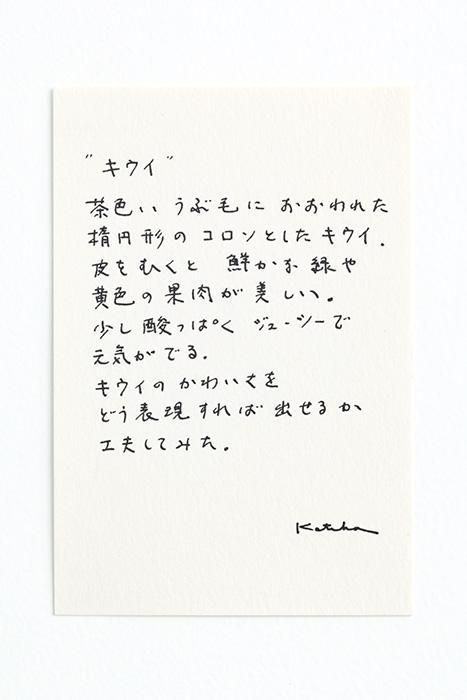 "キウイ"
茶色い うぶ毛に おおわれた
楕円形の コロンとした キウイ.
皮をむくと 鮮かな 緑や
黄色の果肉が美しい。
少し酸っぱく ジューシーで
元気がでる.
キウイの かわいさを
どう表現すれば 出せるか
工夫してみた。